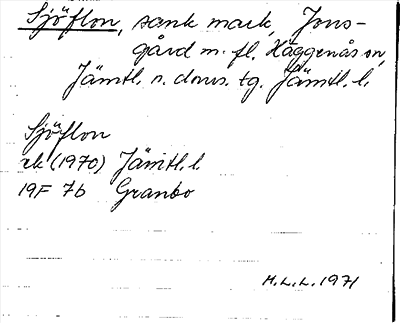 Sjöflon, sank mark, Jons-
gård m. fl. Häggenås sn,
Jämtl. n. doms. tg. Jämtl. l.
Sjöflon
ek (1970) Jämtl. l.
19F 7b Granbo
H.L.L. 1971